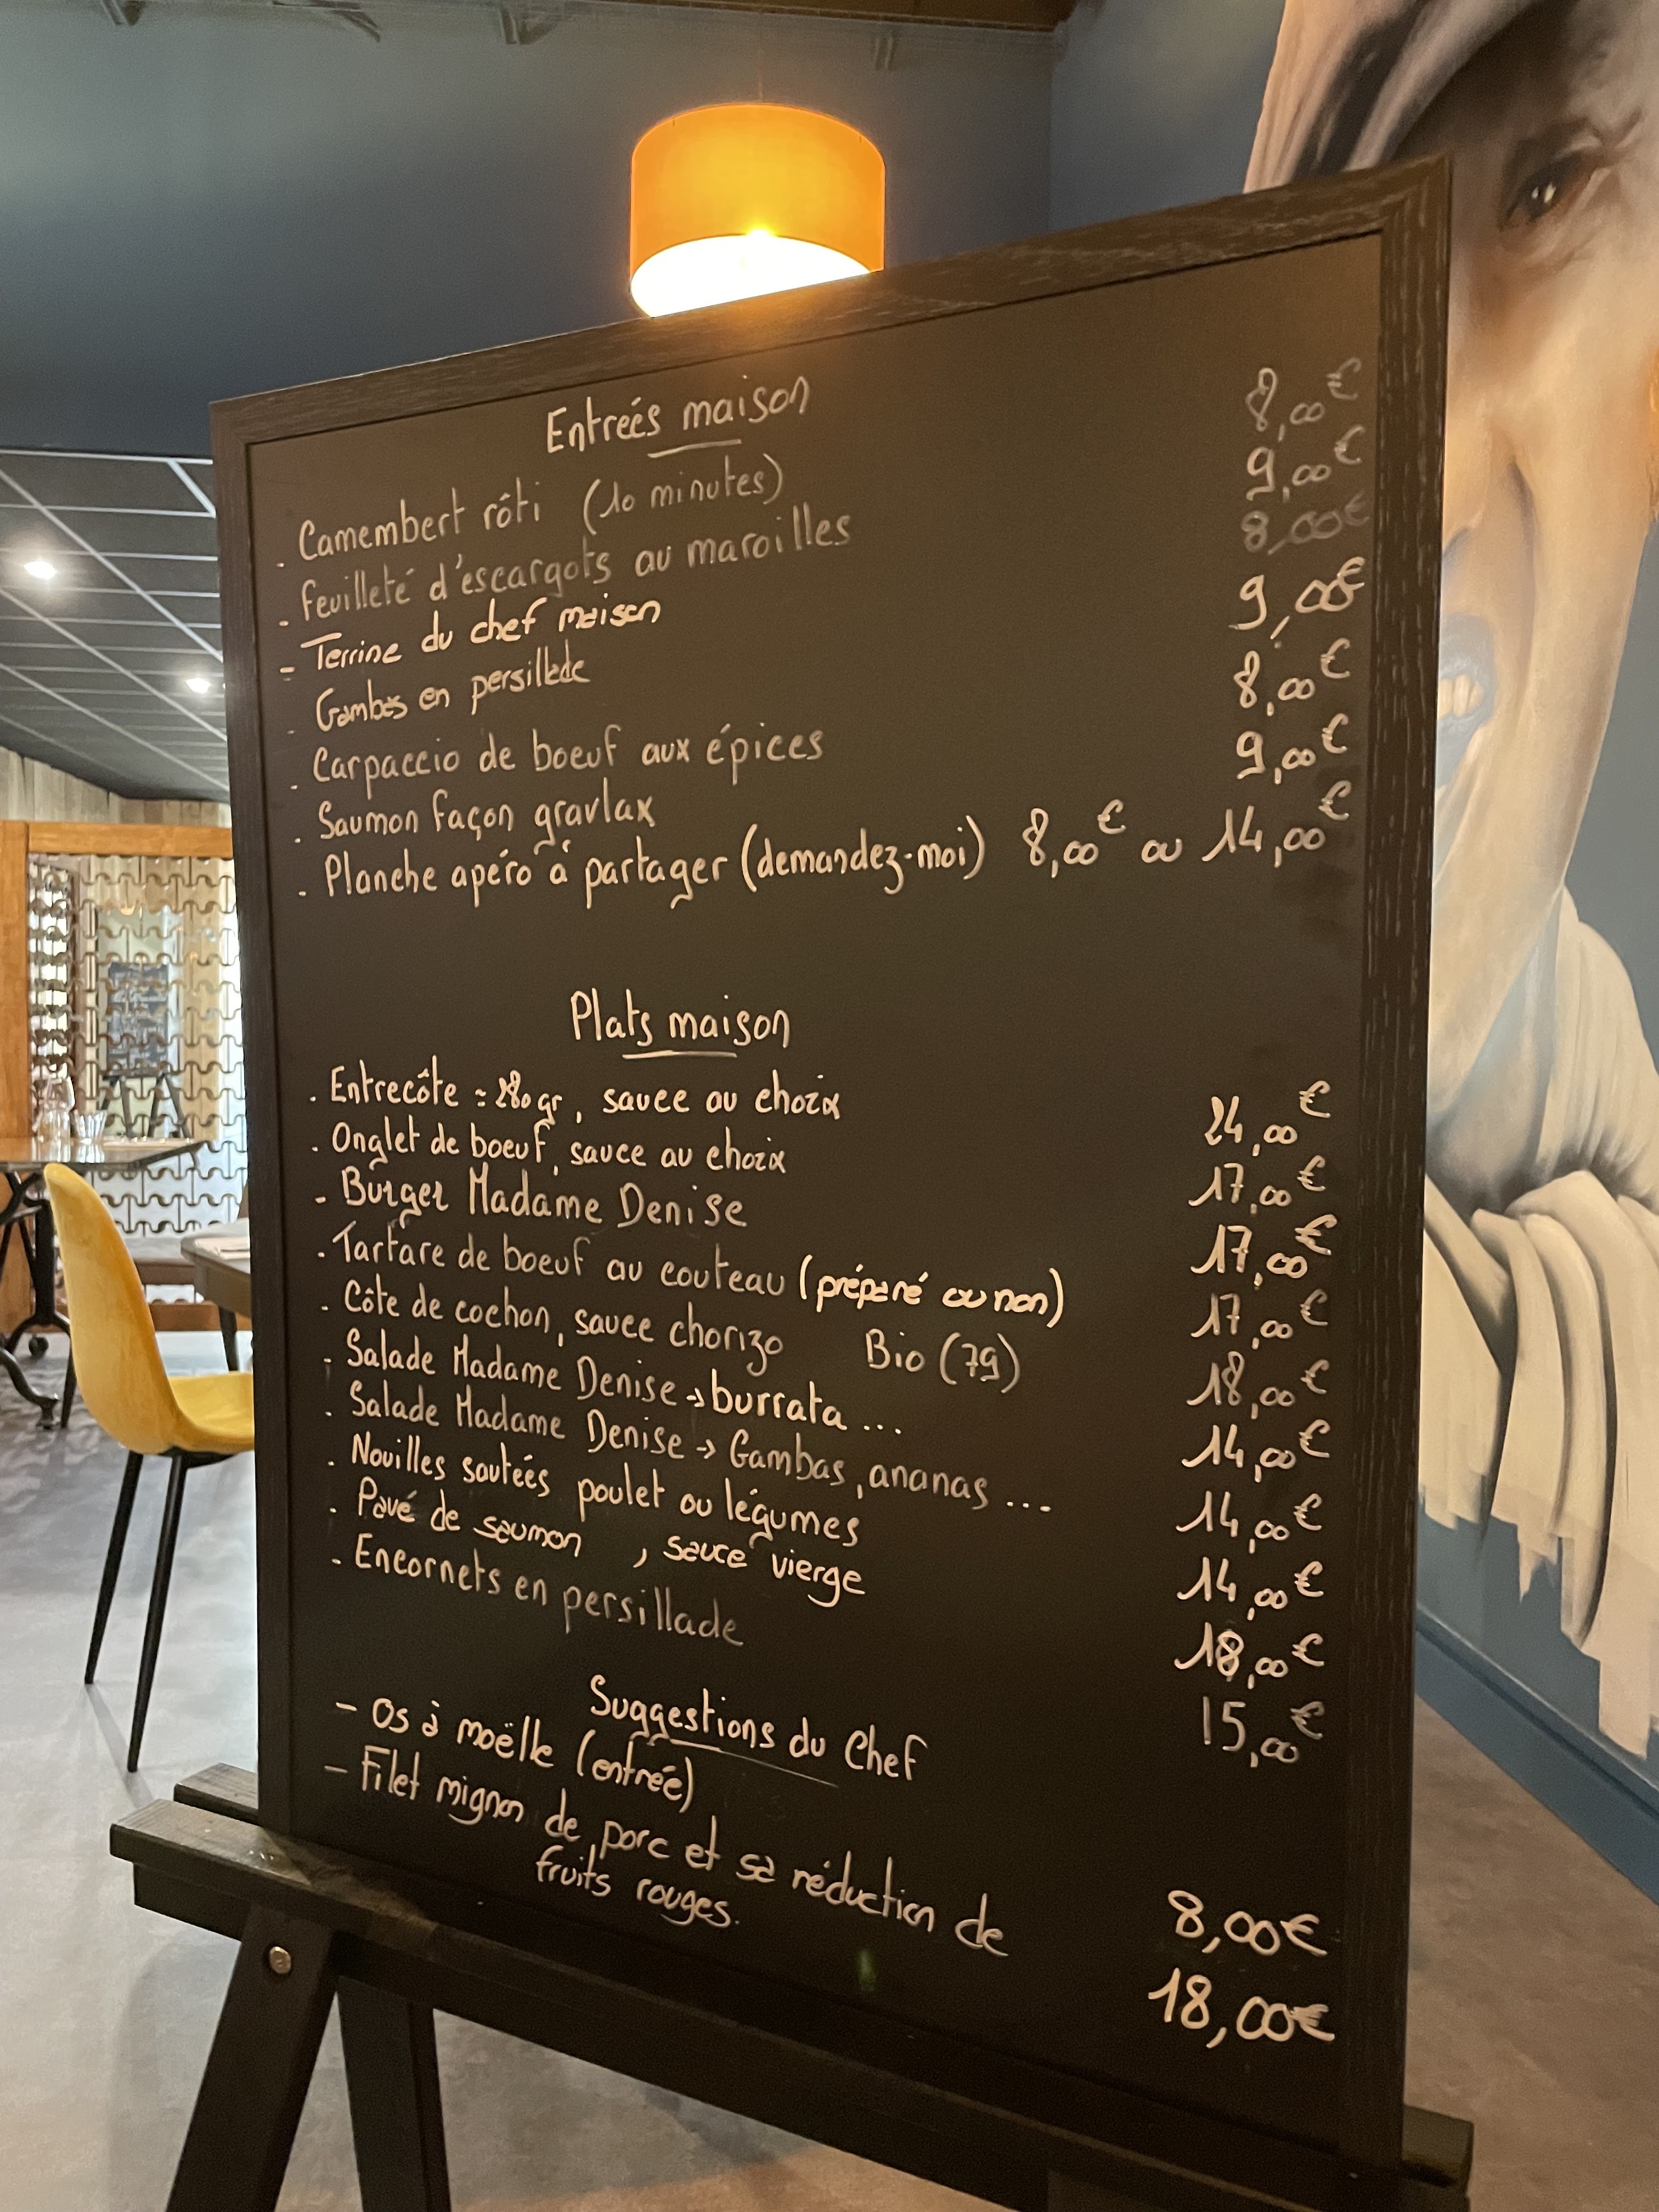 Entrées maison
. Camembert rôti (10 minutes) 8,00€
. feuilleté d'escargots au maroilles 9,00€
- Terrine du chef maison 8,00€
. Gambas en persillade 9,00€
. Carpaccio de boeuf aux épices 8,00€
. Saumon façon gravlax 9,00€
. Planche apéro à partager (demandez-moi) 8,00€ ou 14,00€
Plats maison
. Entrecôte = 280 gr, sauce au choix 24,00€
. Onglet de boeuf, sauce au choix 17,00€
- Burger Madame Denise 17,00€
. Tartare de boeuf au couteau (préparé ou non) 17,00€
. Côte de cochon, sauce chorizo Bio (79) 18,00€
- Salade Madame Denise → burrata ... 14,00€
. Salade Madame Denise → Gambas, ananas ... 14,00€
. Nouilles sautées poulet ou légumes 14,00€
. Pavé de saumon , sauce vierge 18,00€
. Encornets en persillade 15,00€
Suggestions du Chef
- Os à moëlle (entrée) 8,00€
- Filet mignon de porc et sa réduction de 18,00€
fruits rouges.